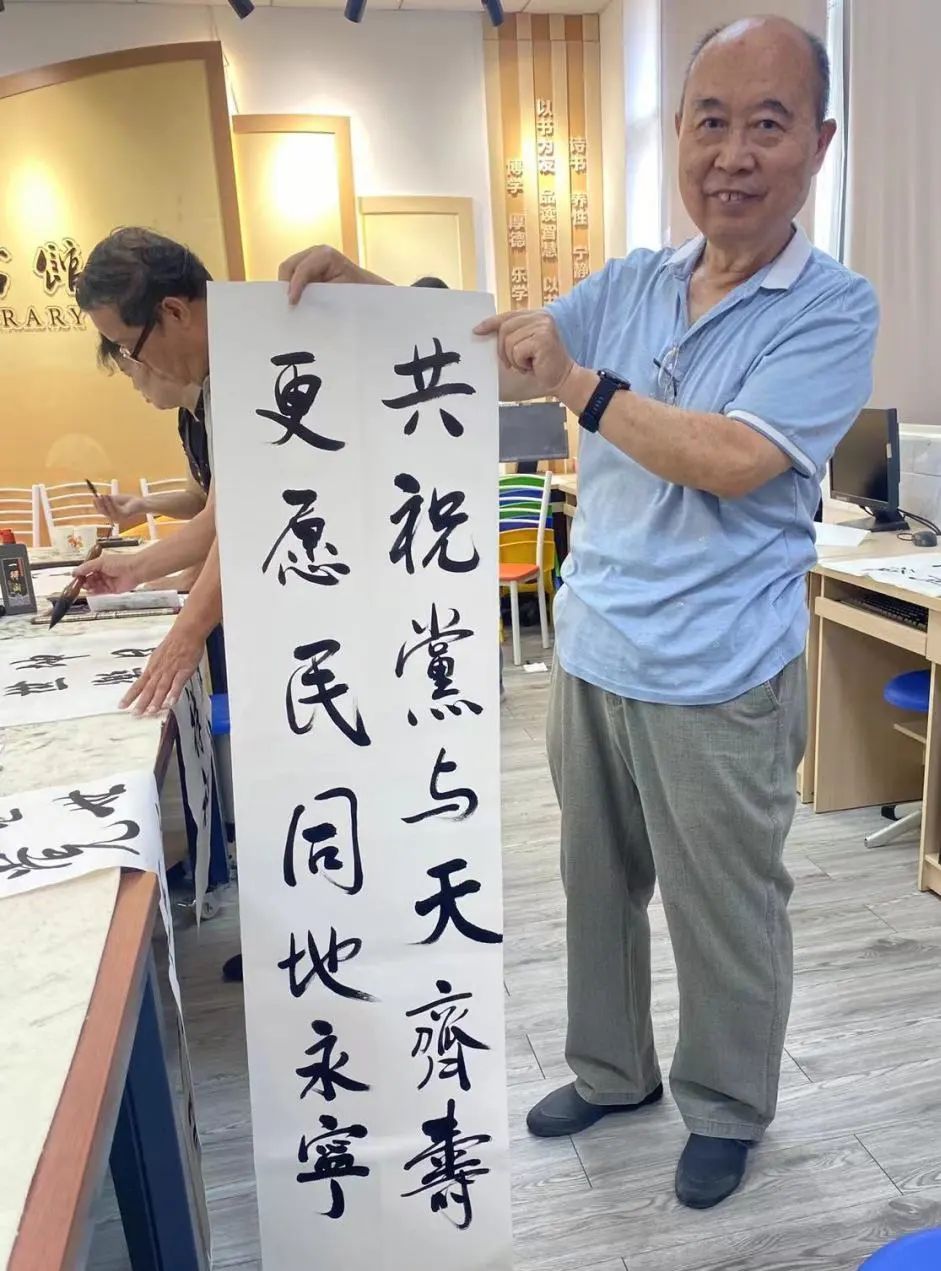 共祝黨与天齊壽
更愿民同地永寧
書館
RARY
以书为友 品读智慧 以书
诗书 养性 宁静
博学 厚德 乐学